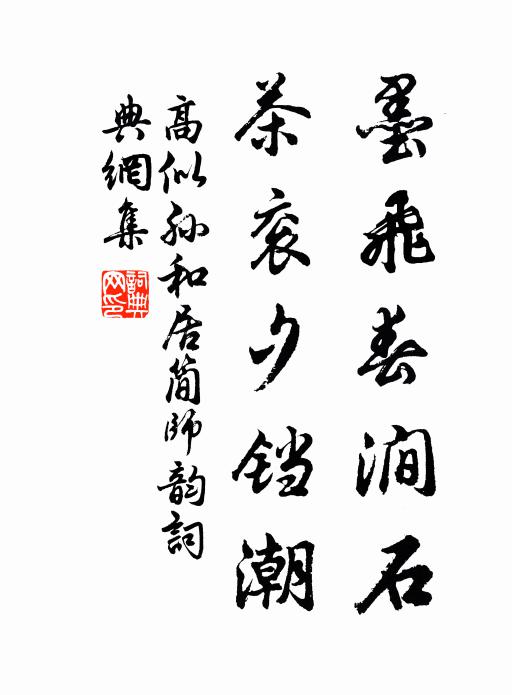 墨飛春澗石
茶衮夕铛潮
高似孙和居简師韵詞
典網集
詞典
网印